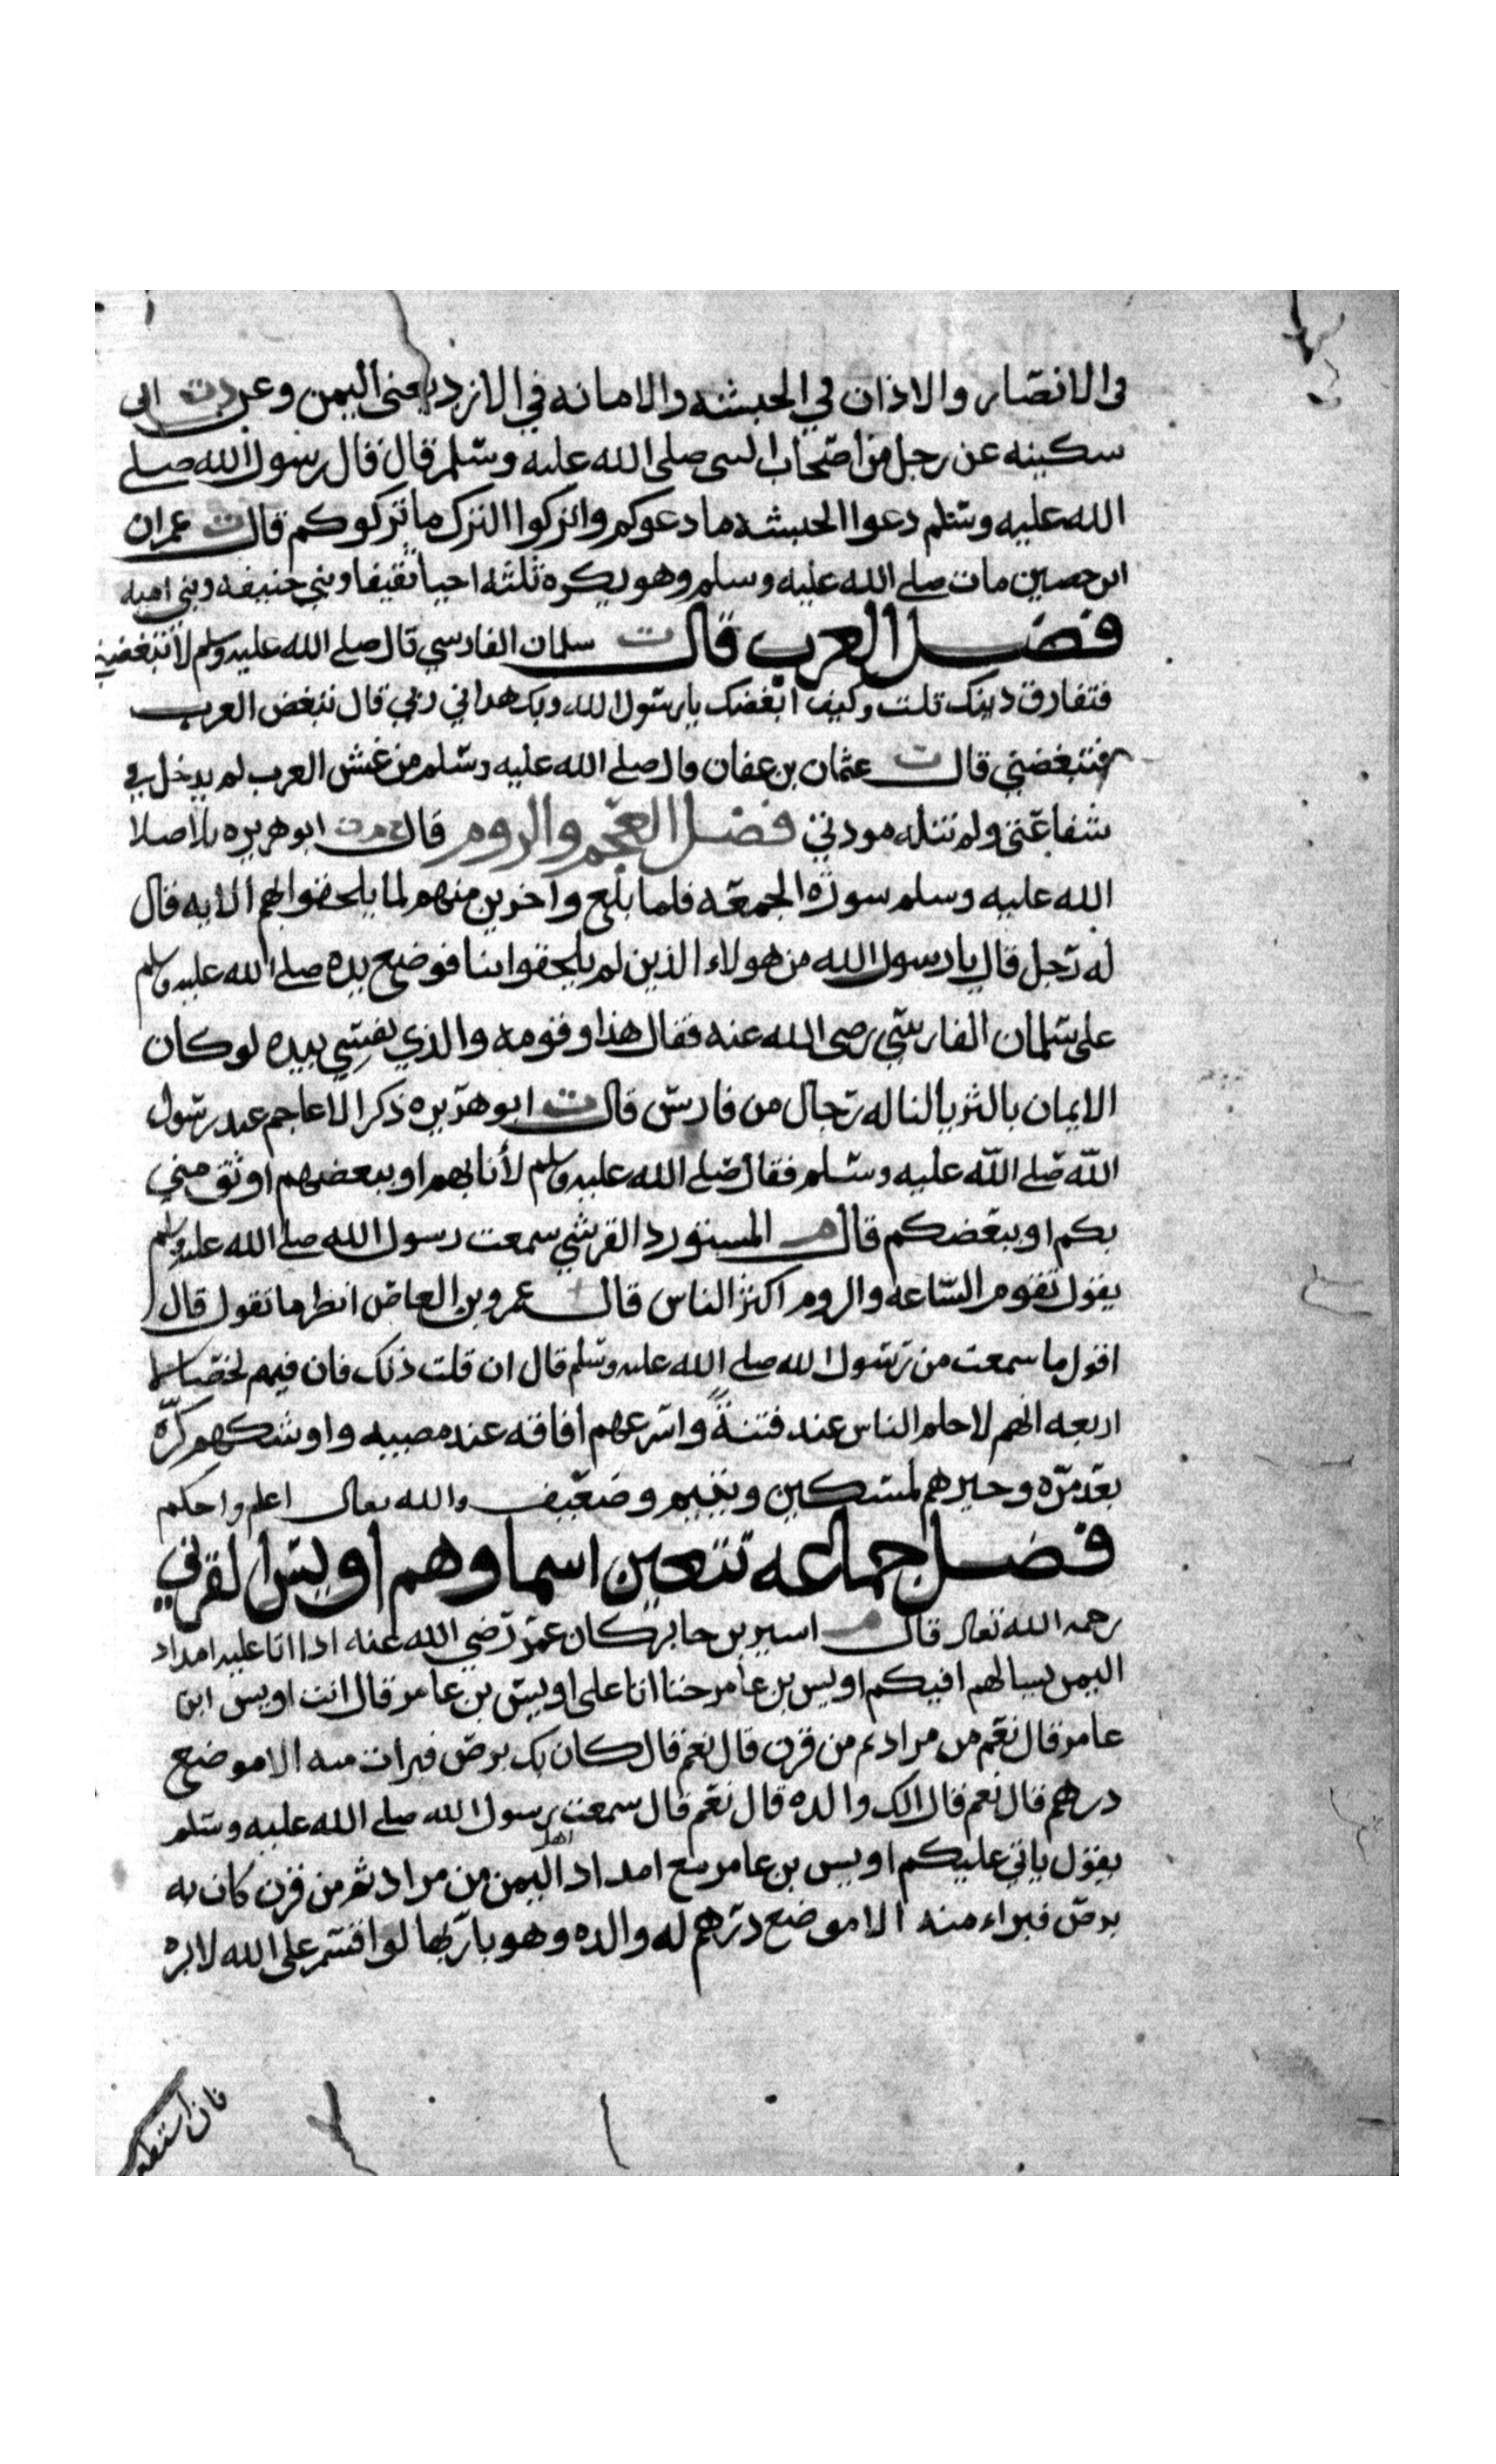 في الانصار والاذان في الحبشه والامانه في الازد يعني اليمن وعن دت ابي
سكينه عن رجل من اصحاب النبي صلى الله عليه وسلم قال قال رسول الله صلى
الله عليه وسلم دعوا الحبشه ما دعوكم واتركوا الترك ما تركوكم قال ت عمران
ابن حصين مات صلى الله عليه وسلم وهو يكره ثلثه احيا ثقيفا وبني حنيفه وبني اميه
فضل العرب قال ت سلمان الفارسي قال صلى الله عليه وسلم لا تبغضني
فتفارق دينك قلت وكيف ابغضك يا رسول الله وبك هداني ربي قال تبغض العرب
فتبغضني قال ت عثمان بن عفان قال صلى الله عليه وسلم من غش العرب لم يدخل في
شفاعتي ولم تنله مودتي فضل العجم والروم قال خ م ت ابو هريره تلا صلى
الله عليه وسلم سورة الجمعه فلما بلغ واخرين منهم لما يلحقوا بهم الايه قال
له رجل قال يا رسول الله من هولاء الذين لم يلحقوا بنا فوضع يده صلى الله عليه وسلم
على سلمان الفارسي رضي الله عنه فقال هذا وقومه والذي نفسي بيده لو كان
الايمان بالثريا لناله رجال من فارس قال ت ابو هريره ذكر الاعاجم عند رسول
الله صلى الله عليه وسلم فقال صلى الله عليه وسلم لأنا بهم او ببعضهم اوثق مني
بكم او ببعضكم قال م المستورد القرشي سمعت رسول الله صلى الله عليه وسلم
يقول تقوم الساعه والروم اكثر الناس قال عمرو بن العاص انظر ما تقول قال
اقول ما سمعت من رسول الله صلى الله عليه وسلم قال ان قلت ذلك فان فيهم لخصالا
اربعه انهم لاحلم الناس عند فتنة واسرعهم افاقه عند مصيبه واوشكهم كرة
بعد مره وخيرهم لمسكين ويتيم وضعيف والله تعالى اعلم واحكم
فضل جماعه تتعين اسماوهم اويس القرني
رحمه الله تعالى قال م اسير بن جابر كان عمر رضي الله عنه اذا اتا عليه امداد
اليمن يسالهم افيكم اويس بن عامر حتا اتا على اويس بن عامر قال انت اويس ابن
عامر قال نعم من مراد ثم من قرن قال نعم قال كان بك برص فبرات منه الا موضع
درهم قال نعم قال الك والده قال نعم قال سمعت رسول الله صلى الله عليه وسلم
يقول ياتي عليكم اويس بن عامر مع امداد اهل اليمن من مراد ثم من قرن كان به
برص فبراء منه الا موضع درهم له والده وهو بار بها لو اقسم على الله لابره
فان استطعت